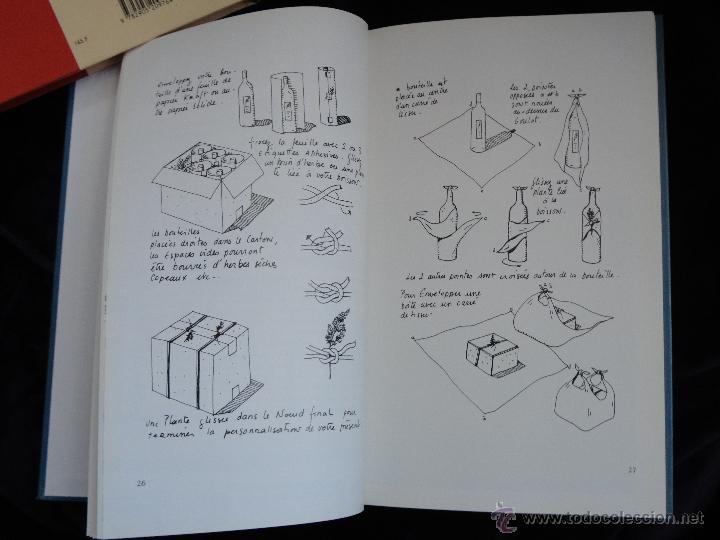 Enveloppez votre bou-
teille d'une feuille de
papier Kraft ou au-
tre papier solide.
Fixez la feuille avec 2 ou 3
Etiquettes Adhésives. Glissez
un brin d'herbe ou une plan
te lié à votre boisson.
les bouteilles
placées droites dans le Cartons,
les Espaces vides pourront
être bourrés d'herbes sèche,
Copeaux etc...
une Plante glissée dans le Nœud final pour
terminer la personnalisation de votre présent
26
bouteille est
placée au centre
d'un carré de
tissu.
Les 2 pointes
opposées a et b
sont nouées
au-dessus du
Goulot.
Glissez une
plante lié
à la
boisson.
Les 2 autres pointes sont croisées autour de la bouteille.
Pour Envelopper une
boîte avec un carré
de tissu.
27
www.todocoleccion.net